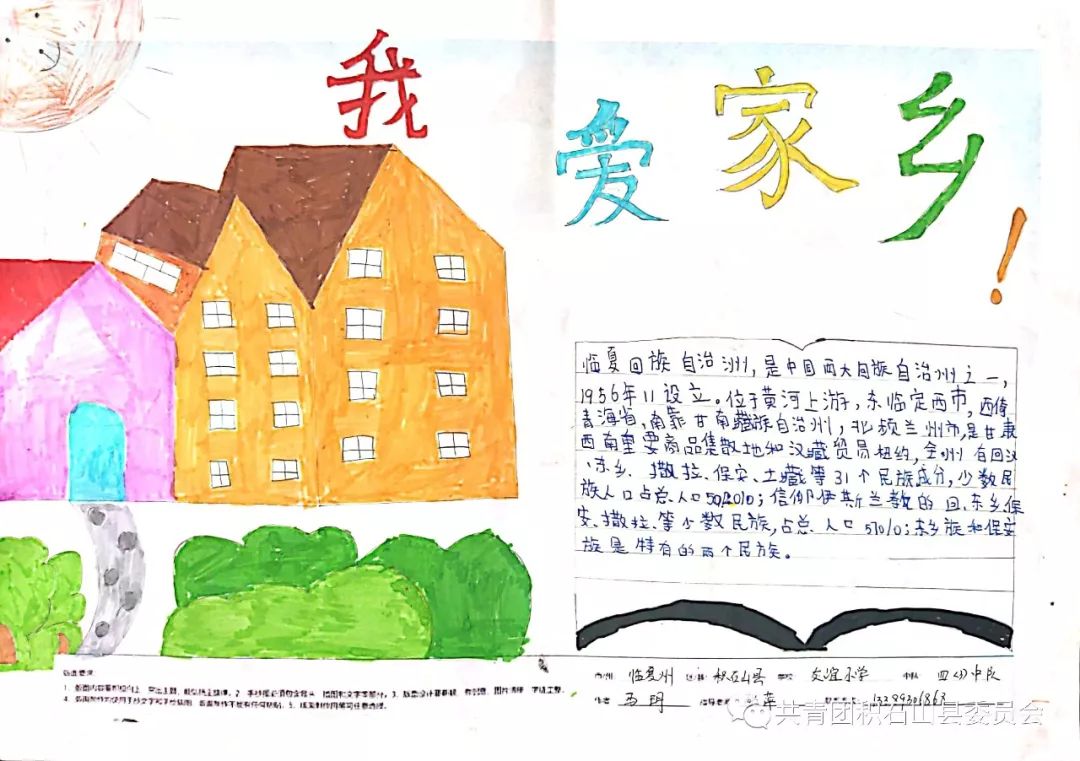 我爱家乡！
临夏回族自治州，是中国两大回族自治州之一，
1956年11设立。位于黄河上游，东临定西市，西倚
青海省，南靠甘南藏族自治州，北频兰州市，是甘肃
西南重要商品集散地和汉藏贸员纽约，全州有回汉
、东乡、撒拉、保安、土藏等31个民族成分，少数民
族人口占总人口
信仰伊斯兰教的回、东乡保
安、撒拉、等少数民族，占总人口
东乡族和保安
族是特有的两个民族。
版面要求：
市州 临夏州 区县 积石山县 学校 友谊小学 中队 四(1)中队
作者 马明
共青团积石山县委员会